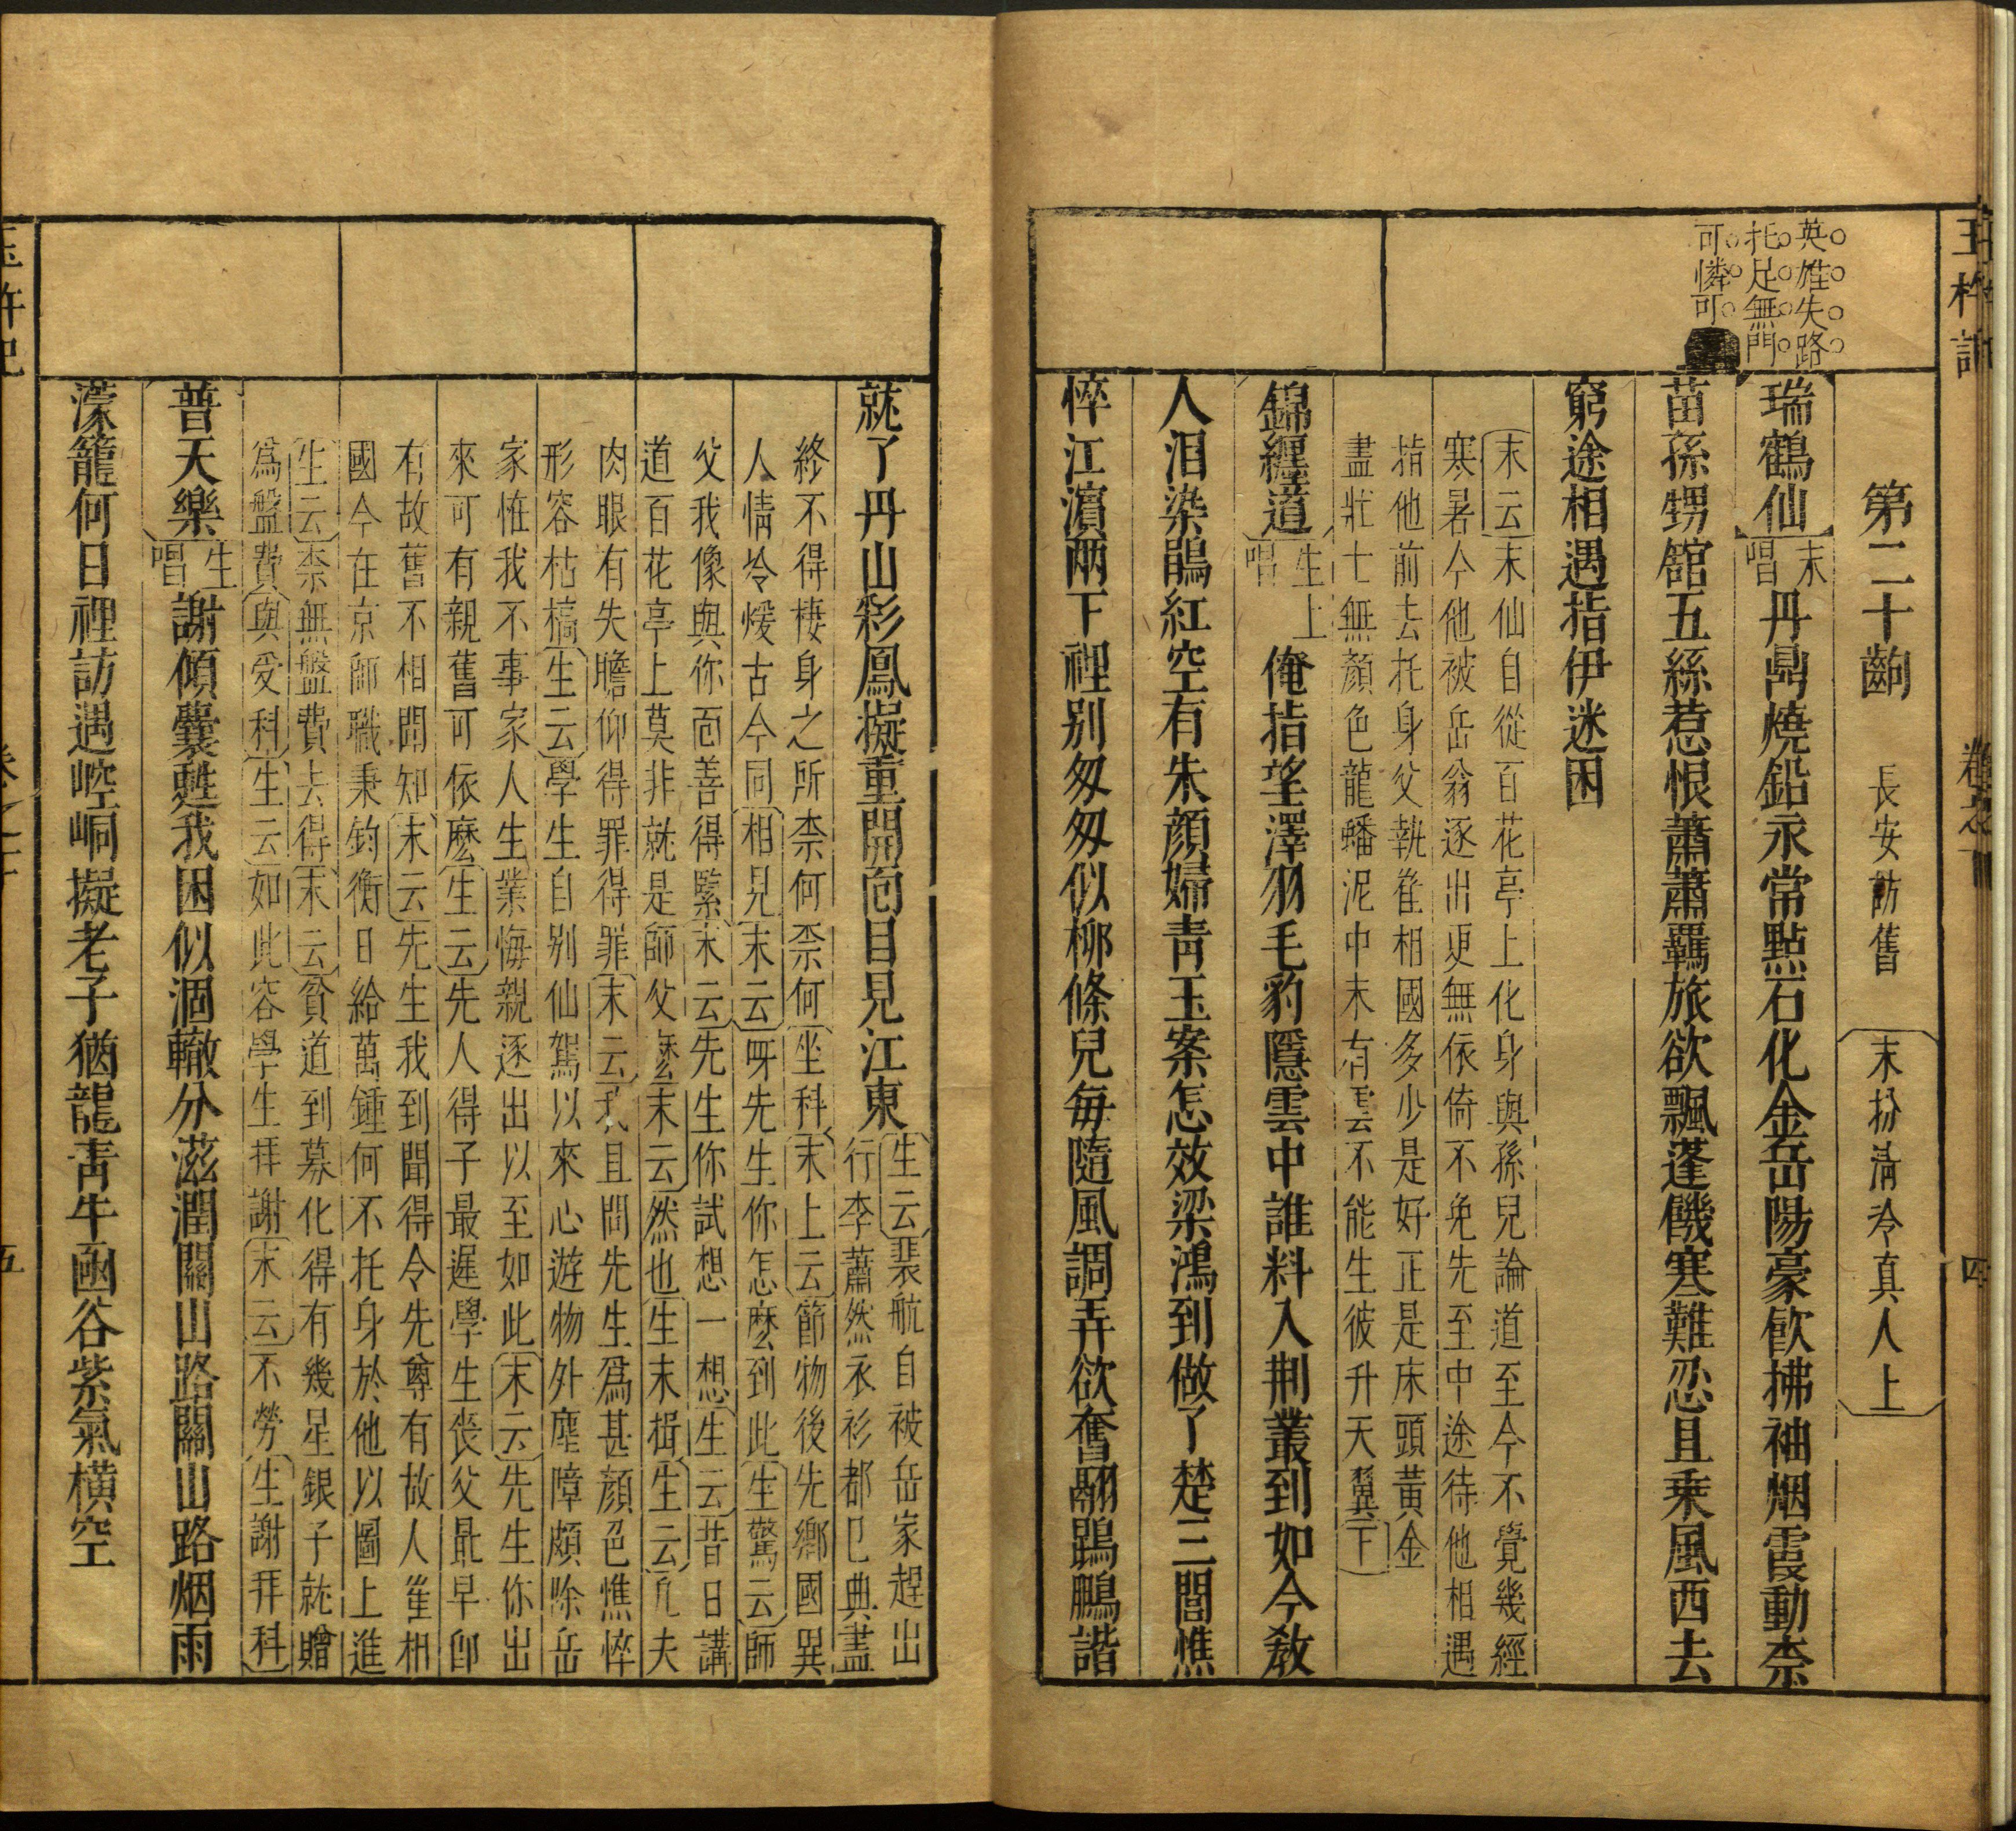 玉杵記
卷之下
四
英雄失路
托足無門
可憐可
第二十齣 長安訪舊 末扮清冷真人上
瑞鶴仙 末唱 丹鼎燒鉛永常點石化金岳陽豪飲拂袖烟霞動柰
苗孫甥舘五絲惹恨蕭蕭羈旅欲飄蓬饑寒難忍且乗風西去
窮途相遇指伊迷困
末云 末仙自從百花亭上化身與孫兒論道至今不覺幾經
寒暑今他被岳翁逐出更無依倚不免先至中途待他相遇
指他前去托身父執崔相國多少是好正是床頭黃金
盡壯士無顔色龍蟠泥中未有雲不能生彼升天翼 下
錦纏道 生上唱 俺指望澤羽毛豹隱雲中誰料入荆叢到如今教
人泪染鵑紅空有朱顔婦青玉案怎效梁鴻到做了楚三閭憔
悴江濵兩下裡别匆匆似栁條兒每隨風調弄欲奮翮鵾鵬諧
就了丹山彩鳳擬重開面目見江東
生云 裴航自被岳家趕出
行李蕭然衣衫都已典盡
終不得棲身之所柰何柰何 坐科 末上云 節物後先鄉國異
人情冷煖古今同 相見 末云 呀先生你怎麽到此 生驚云 師
父我像與你面善得緊 末云 先生你試想一想 生云 昔日講
道百花亭上莫非就是師父麽 末云 然也 生末揖 生云 凡夫
肉眼有失瞻仰得罪得罪 末云 我且問先生爲甚顔色憔悴
形容枯槁 生云 學生自别仙駕以來心遊物外塵障頗除岳
家恠我不事家人生業悔親逐出以至如此 末云 先生你出
來可有親舊可依麽 生云 先人得子最遲學生丧父最早即
有故舊不相聞知 末云 先生我到聞得令先尊有故人崔相
國今在京師職秉鈞衡日給萬鍾何不托身於他以圖上進
生云 柰無盤費去得 末云 貧道到募化得有幾星銀子就贈
爲盤費 與受科 生云 如此容學生拜謝 末云 不勞 生謝拜科
普天樂 生唱 謝傾囊甦我困似涸轍分滋潤關山路關山路烟雨
濛籠何日裡訪遇崆峒擬老子猶龍青牛函谷紫氣横空
玉杵記
五